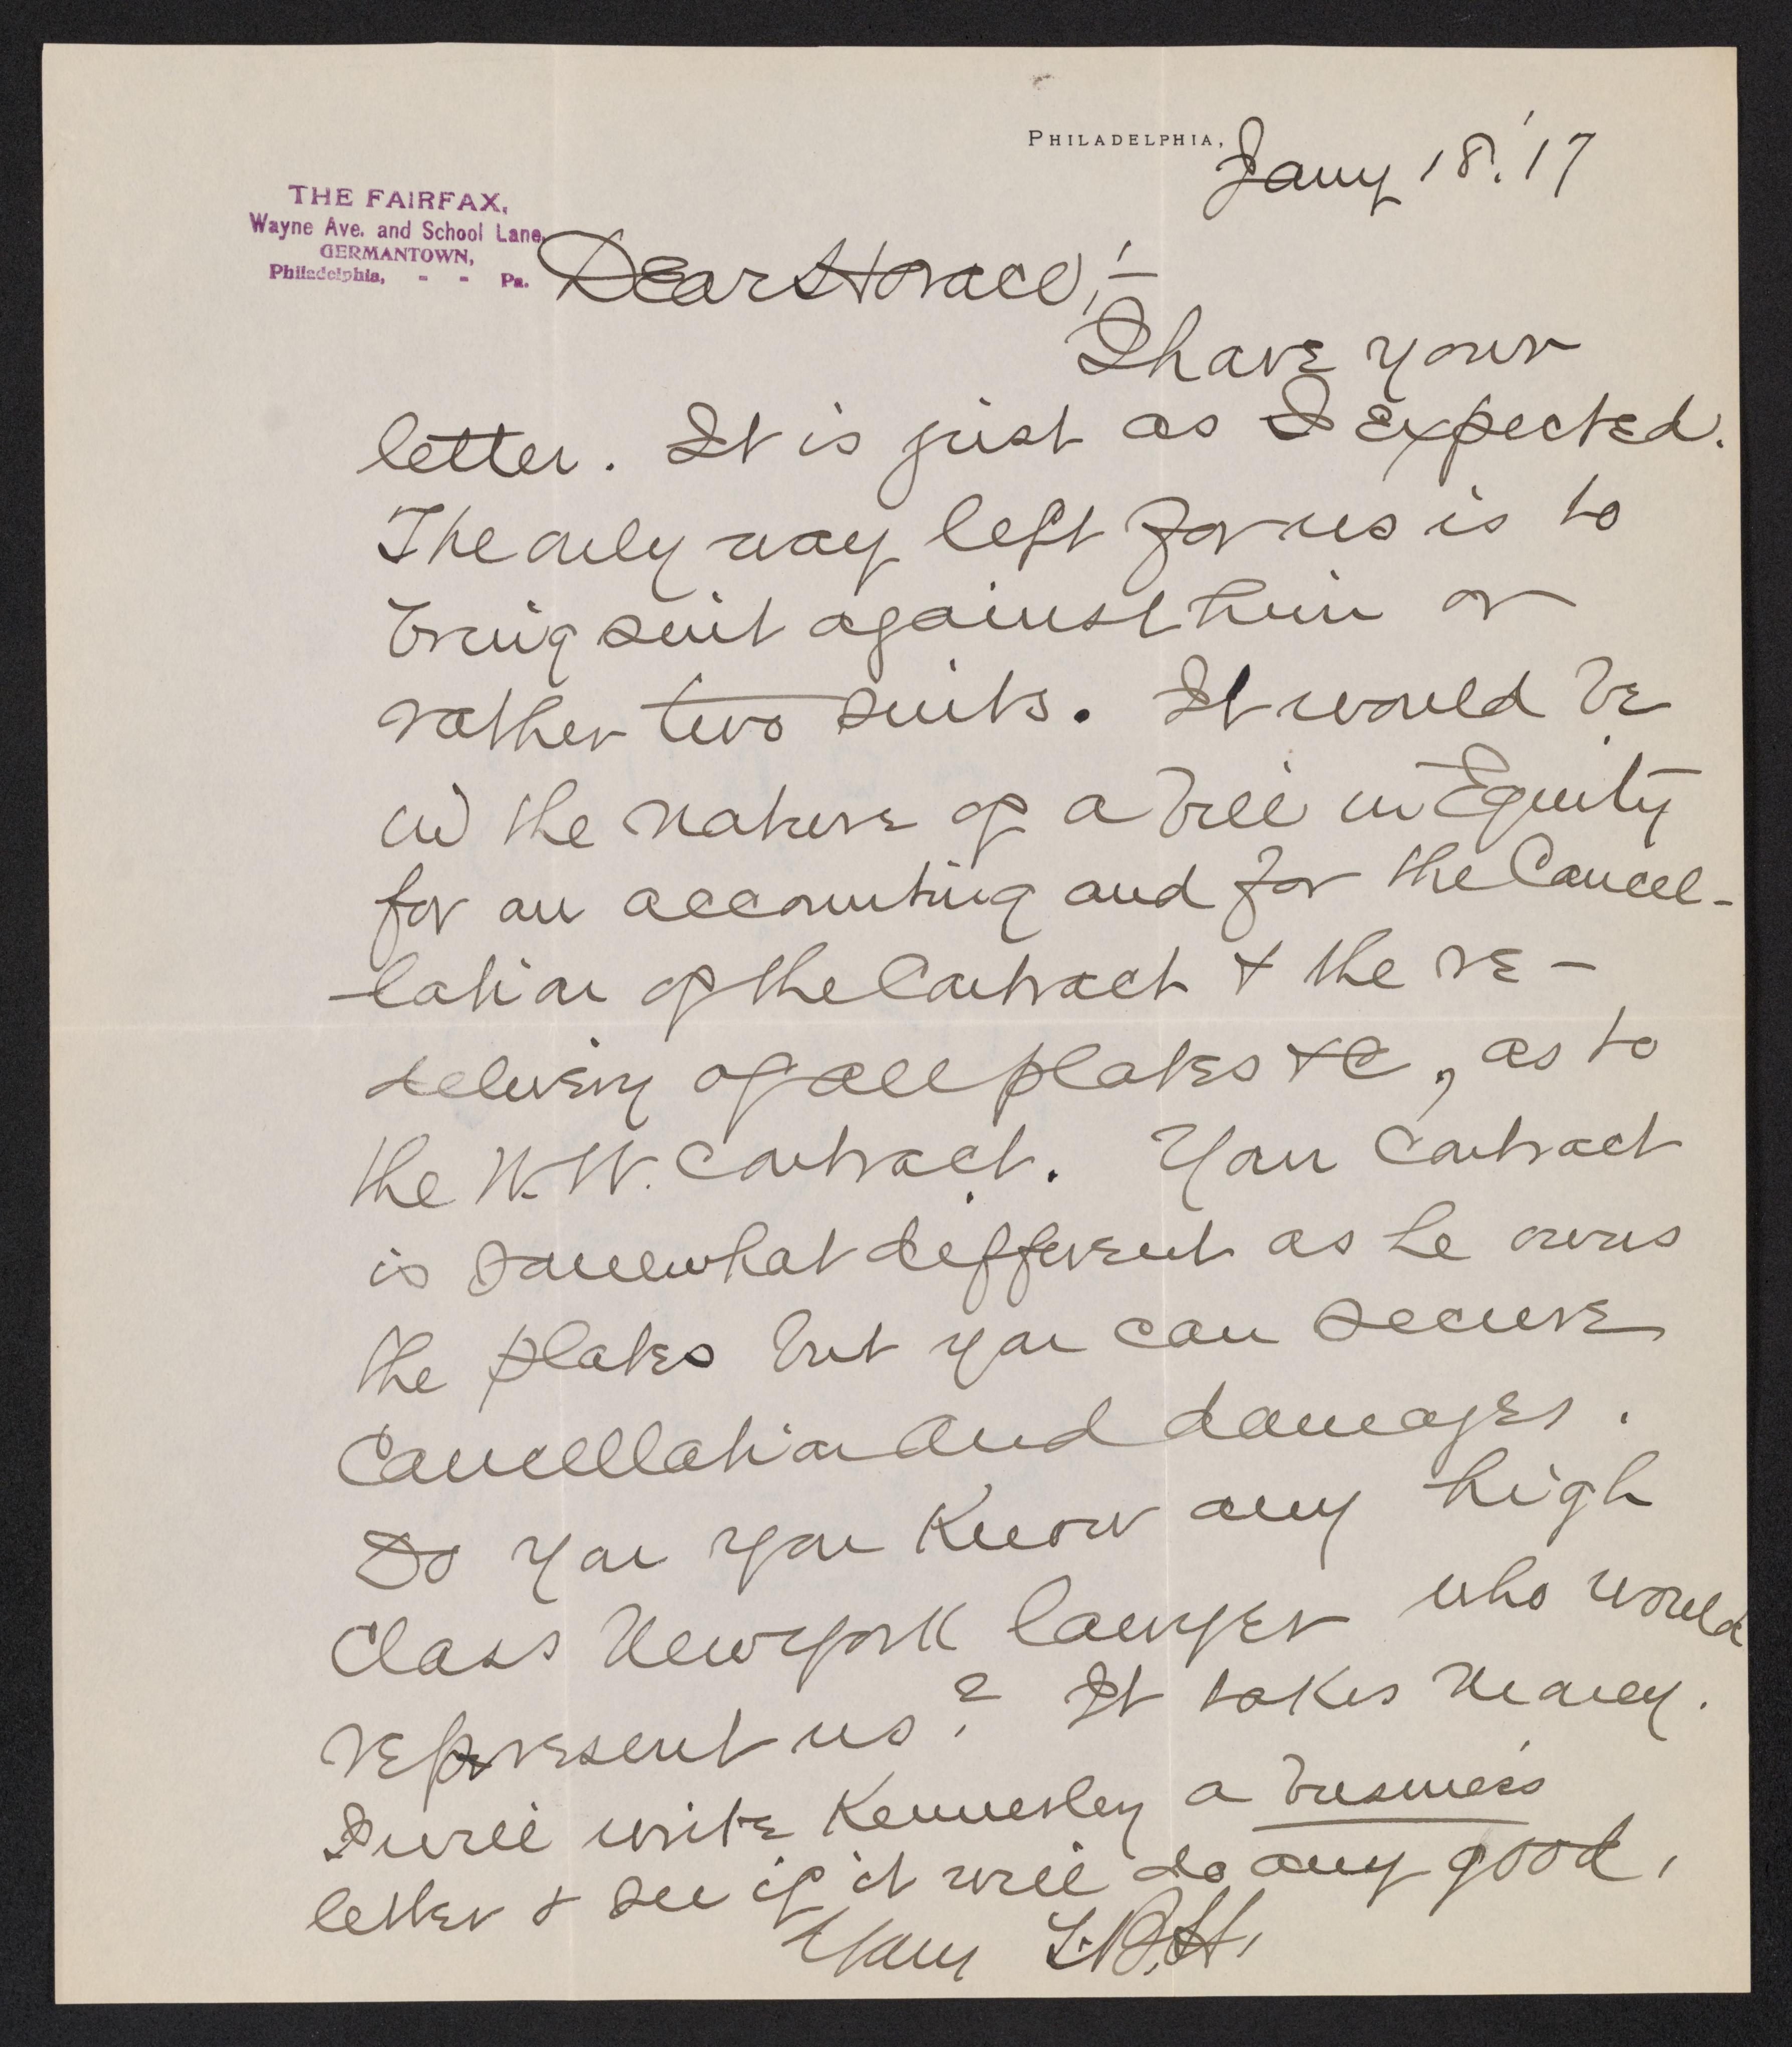 PHILADELPHIA, Jany 18. '17
THE FAIRFAX,
Wayne Ave. and School Lane,
GERMANTOWN,
Philadelphia, - - Pa.
Dear Horace,:—
I have your
letter. It is just as I expected.
The only way left for us is to
bring suit against him or
rather two suits. It would be
in the nature of a bill in Equity
for an accounting and for the Cancel-
-lation of the Contract & the re-
delivery of all plates &c, as to
the W.W. Contract. Your Contract
is somewhat different as he owns
the plates but you can secure
Cancellation and damages.
Do you you know any high
Class New York lawyer who would
represent us? It takes money.
I will write Kennerley a business
letter & see if it will do any good.
Yours T.B.H.